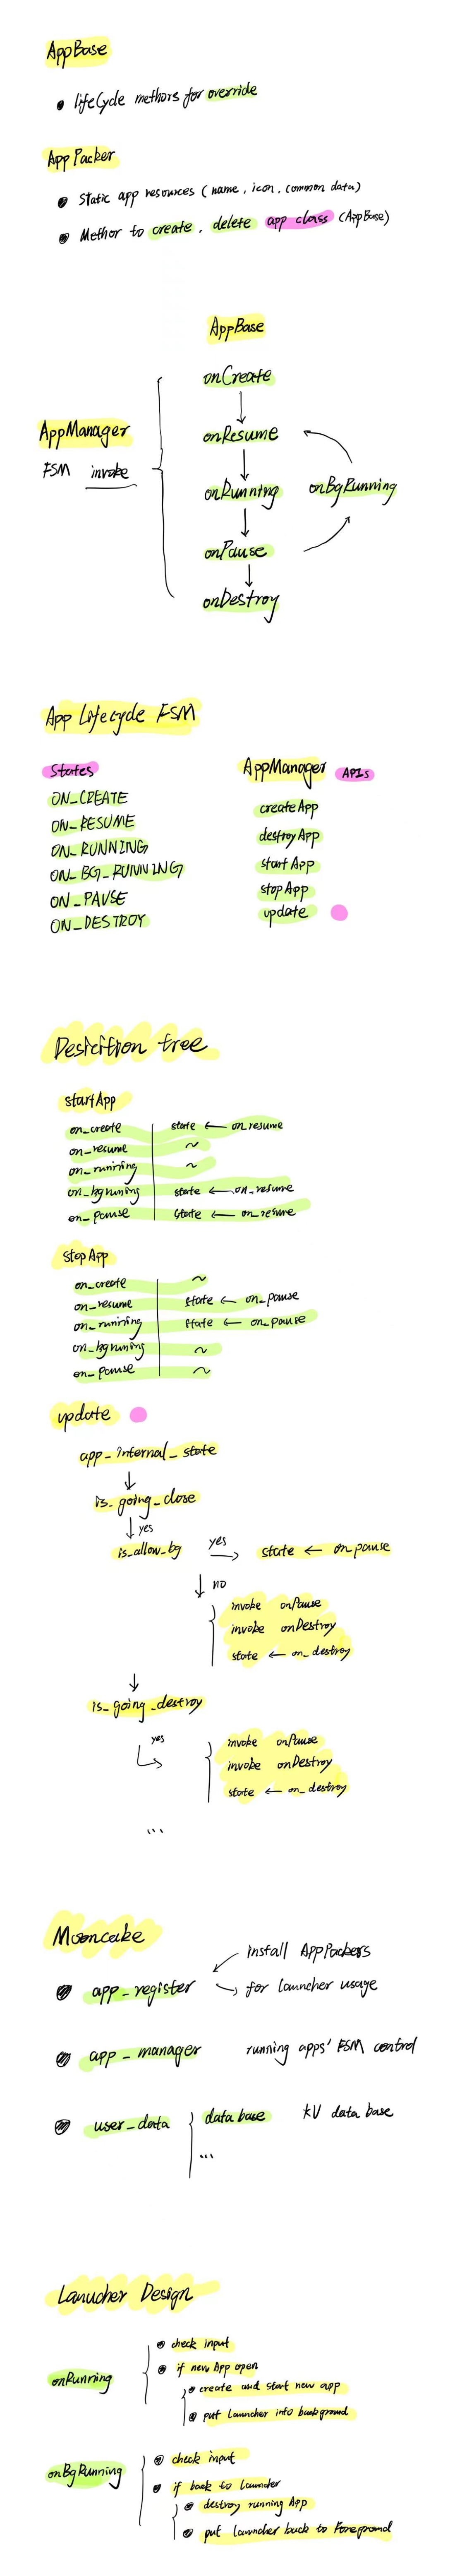 AppBase
lifeCycle methors for override
App Packer
Static app resources (name, icon, common data)
Methor to create, delete app class (AppBase)
AppBase
onCreate
AppManager
onResume
FSM invoke
onRunning
onBgRunning
onPause
onDestroy
App Lifecycle FSM
States
AppManager APIs
ON_CREATE
createApp
ON_RESUME
destroyApp
ON_RUNNING
startApp
ON_BG_RUNNING
stopApp
ON_PAUSE
update
ON_DESTROY
Desicition tree
startApp
on_create state ← on_resume
on_resume ~
on_running ~
on_bgruning state ← on_resume
on_pause state ← on_resume
stopApp
on_create ~
on_resume state ← on_pause
on_running state ← on_pause
on_bgruning ~
on_pause ~
update
app_internal_state
↓
is_going_close
↓ yes
is_allow_bg yes → state ← on pause
↓ no
invoke onPause
invoke onDestroy
state ← on_destroy
↓
is_going_destroy
yes
invoke onPause
invoke onDestroy
state ← on_destroy
...
Mooncake
install AppPackers
app_register
for launcher usage
app_manager running apps' FSM control
user_data data base KV data base
...
Lanucher Design
check input
if new App open
onRunning
create and start new app
put launcher into background
check input
onBgRunning
if back to launcher
destroy running App
put launcher back to Foreground